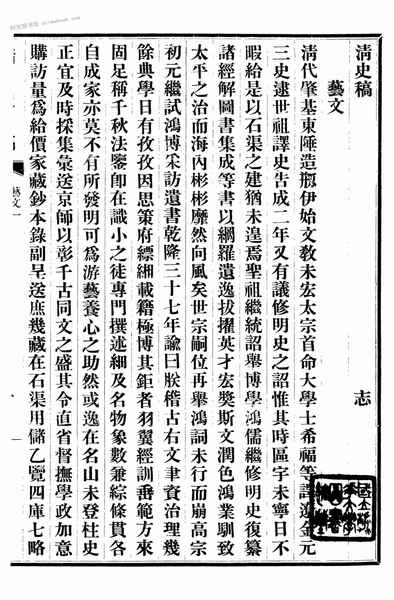 清史稿
志
藝文
清代肇基東陲造刱伊始文敎未宏太宗首命大學士希福等譯遼金元
三史逮世祖譯史告成二年又有議修明史之詔惟其時區宇未寧日不
暇給是以石渠之建猶未遑焉聖祖繼統詔舉博學鴻儒繼修明史復纂
諸經解圖書集成等書以網羅遺逸拔擢英才宏奬斯文潤色鴻業馴致
太平之治而海內彬彬靡然向風矣世宗嗣位再舉鴻詞未行而崩高宗
初元繼試鴻博采訪遺書乾隆三十七年諭曰朕稽古右文聿資治理幾
餘典學日有孜孜因思策府縹緗載籍極博其鉅者羽翼經訓垂範方來
固足稱千秋法鑒卽在識小之徒專門撰述細及名物象數兼綜條貫各
自成家亦莫不有所發明可爲游藝養心之助然或逸在名山未登柱史
正宜及時採集彙送京師以彰千古同文之盛其令直省督撫學政加意
購訪量爲給價家藏鈔本錄副呈送庶幾藏在石渠用儲乙覽四庫七略
藝文一
一